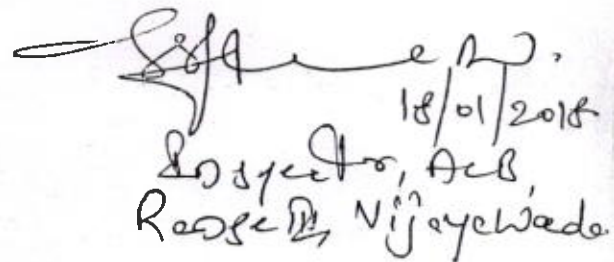 18/01/2018
Inspector, ACB,
Range III, Vijayawada